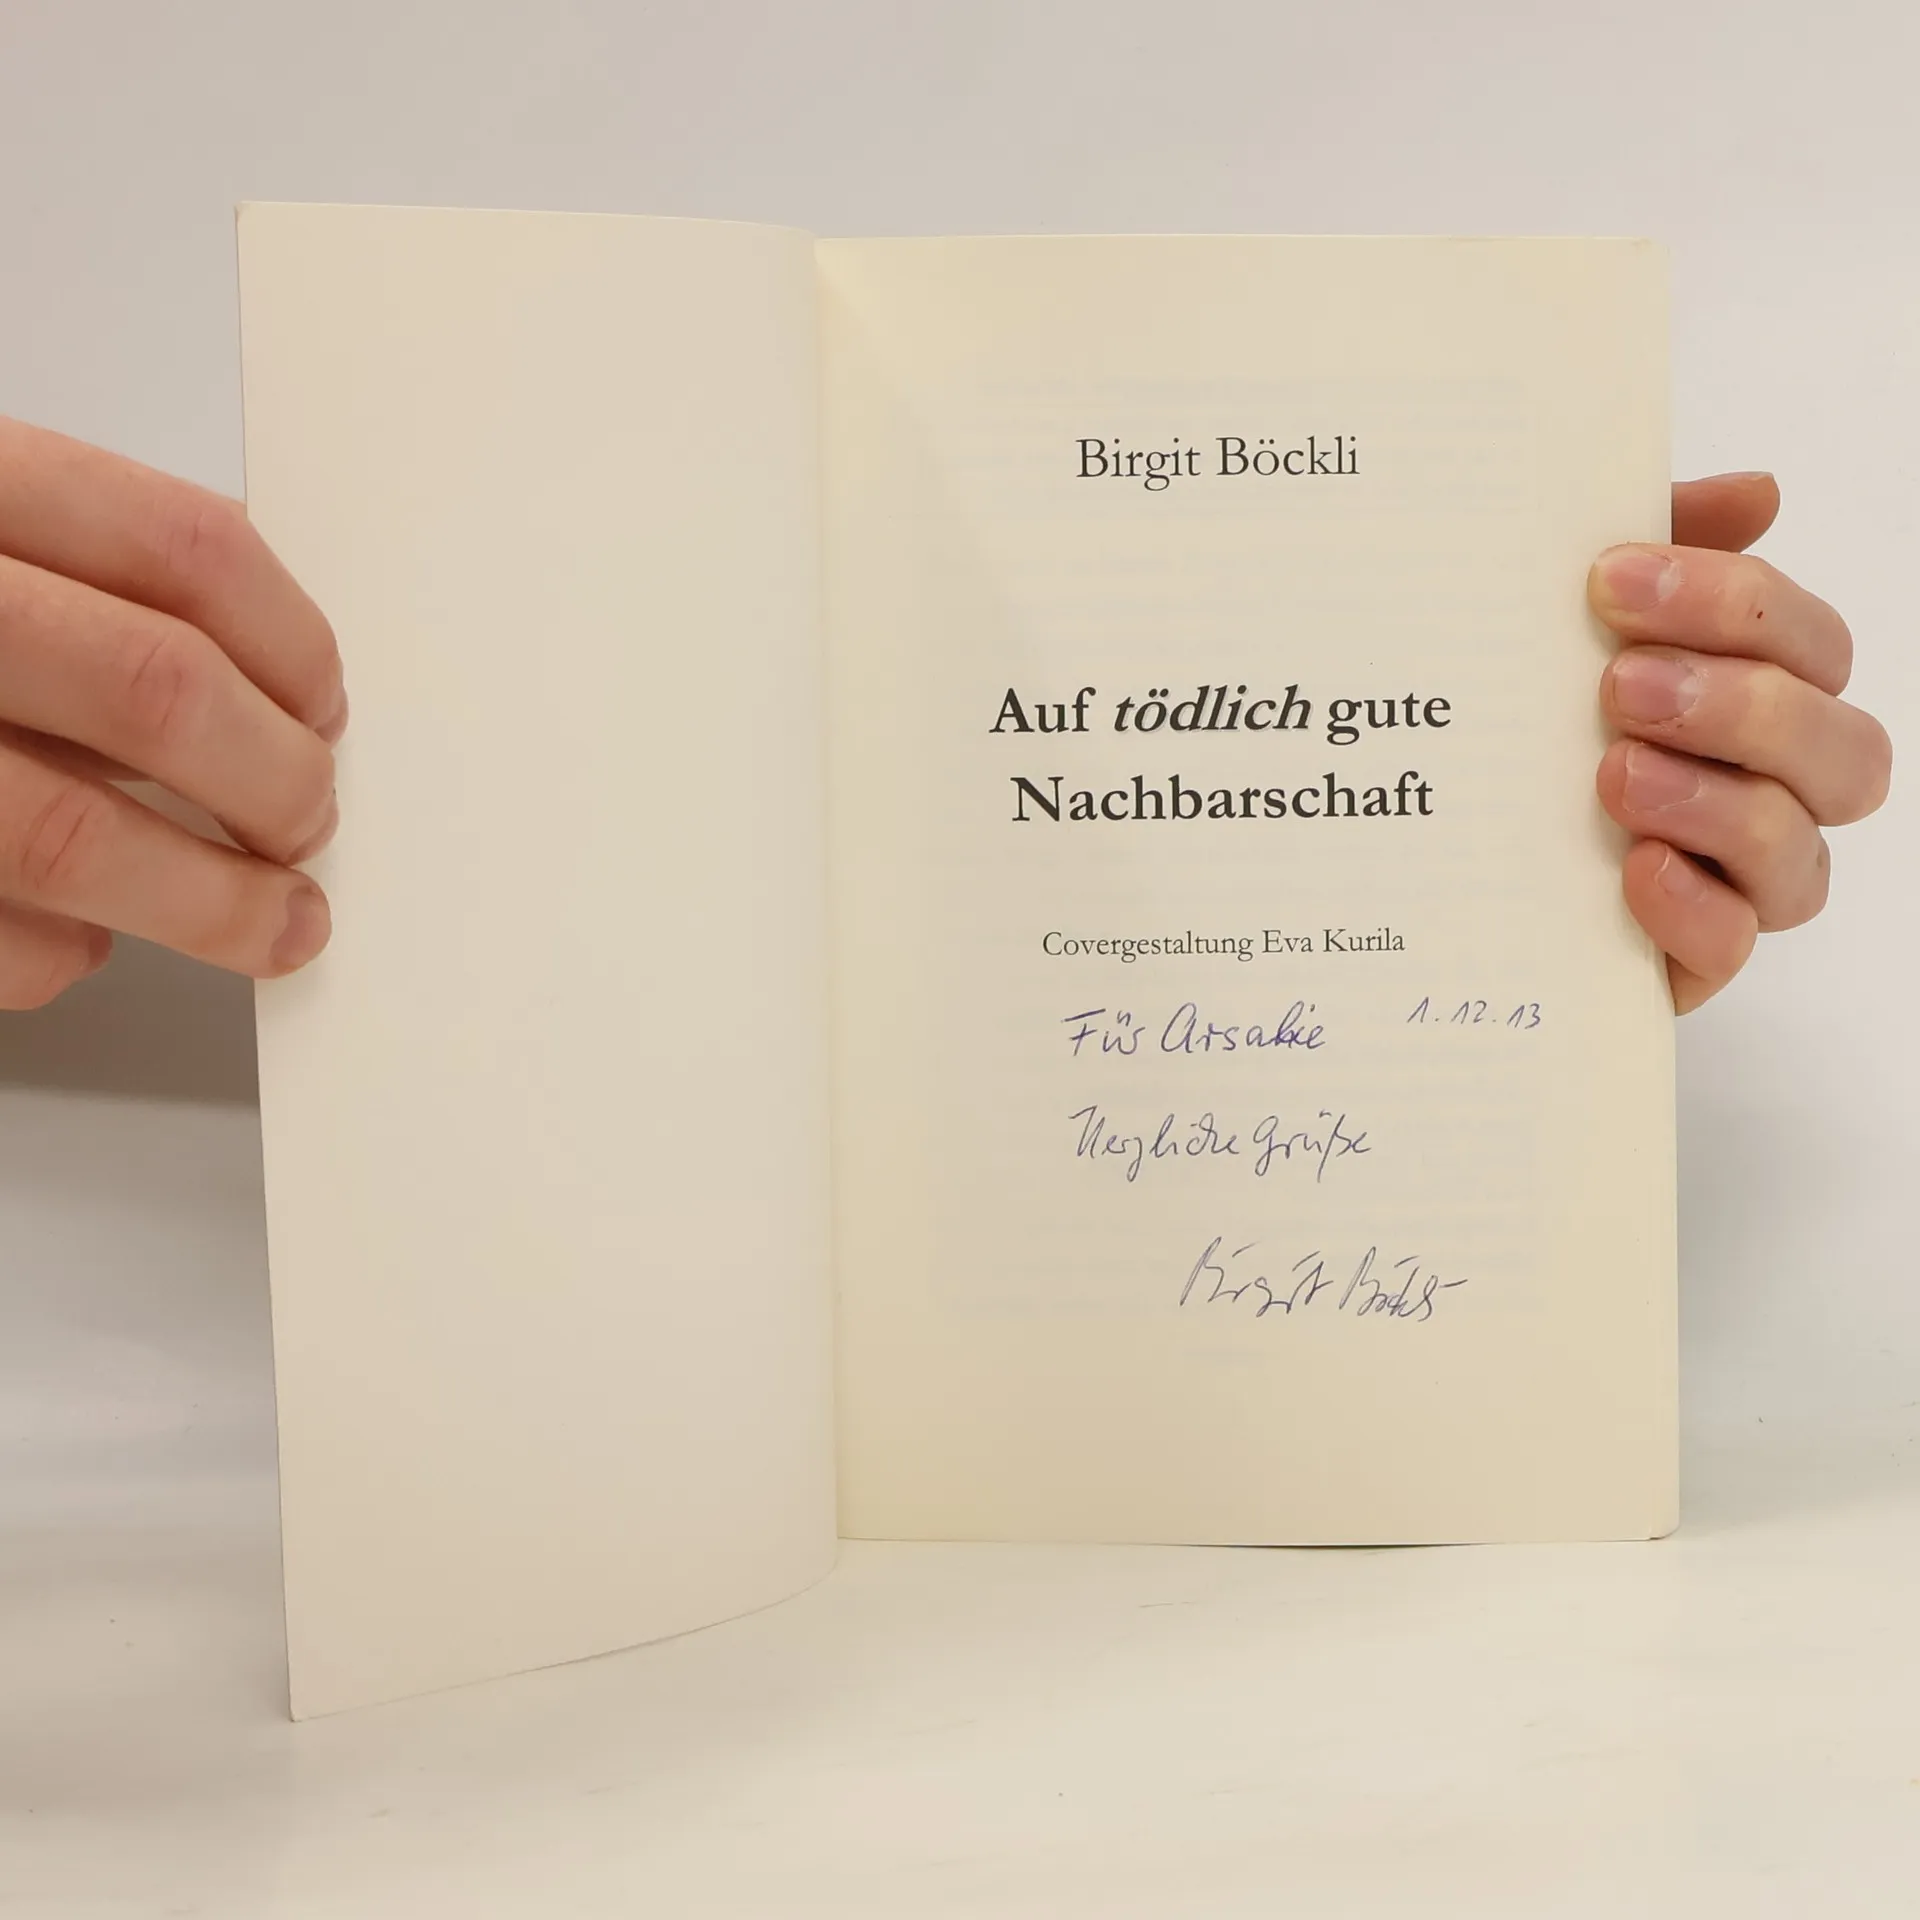 Birgit Böckli
Auf tödlich gute
Nachbarschaft
Covergestaltung Eva Kurila
Für Arsakie 1.12.13
Herzliche Grüße
Birgit Böckli